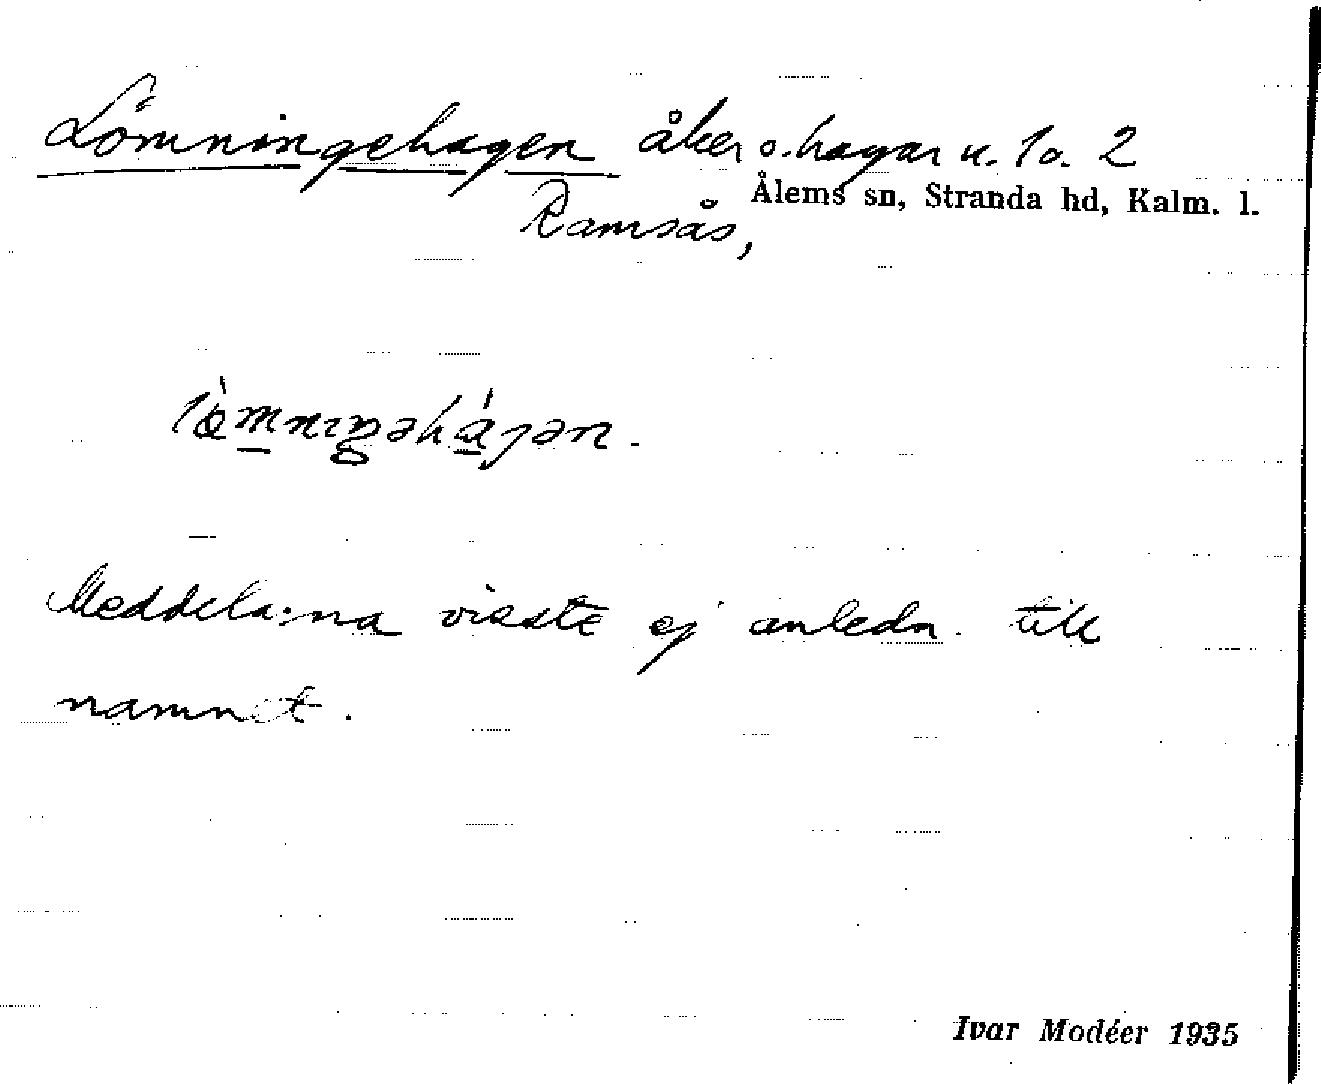 Lömningehagen åker o. hagar u. 1 o. 2
Ålems sn, Stranda hd, Kalm. l.
Ramsås,
Meddela:na visste ej anledn. till
namnet.
Ivar Modéer 1935